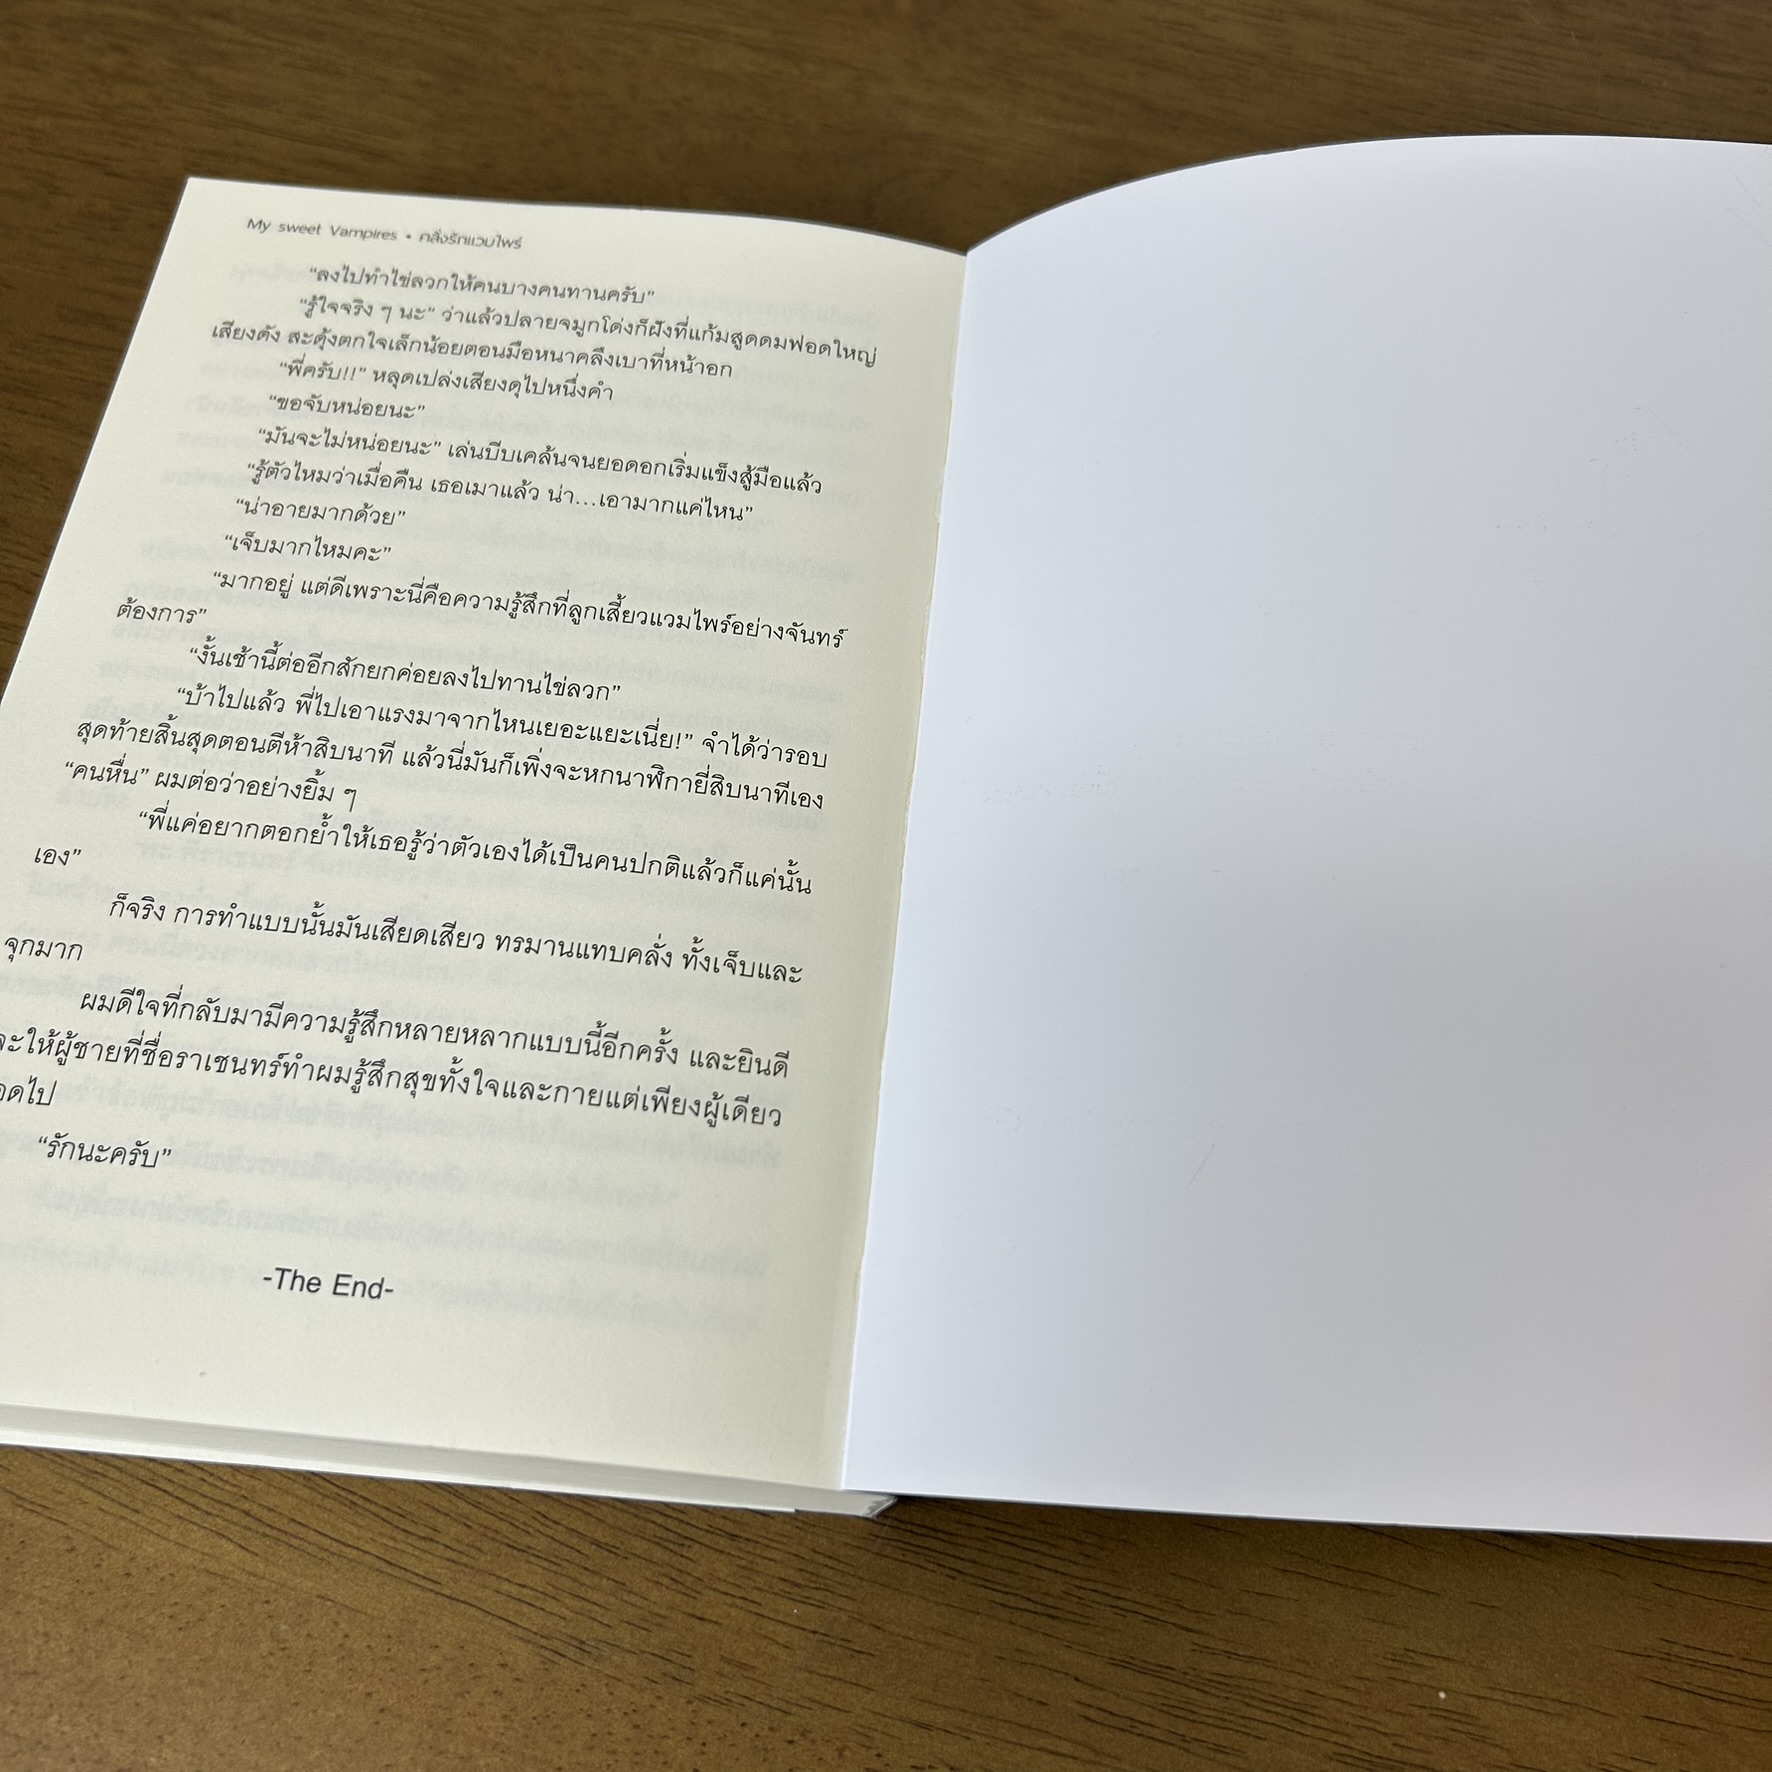 My sweet Vampires • คลั่งรักแวมไพร์
“ลงไปทำไข่ลวกให้คนบางคนทานครับ”
“รู้ใจจริง ๆ นะ” ว่าแล้วปลายจมูกโด่งก็ฝังที่แก้มสูดดมฟอดใหญ่
เสียงดัง สะดุ้งตกใจเล็กน้อยตอนมือหนาคลึงเบาที่หน้าอก
“พี่ครับ!!” หลุดเปล่งเสียงดุไปหนึ่งคำ
“ขอจับหน่อยนะ”
“มันจะไม่หน่อยนะ” เล่นบีบเคล้นจนยอดอกเริ่มแข็งสู้มือแล้ว
“รู้ตัวไหมว่าเมื่อคืน เธอเมาแล้ว น่า...เอามากแค่ไหน”
“น่าอายมากด้วย”
“เจ็บมากไหมคะ”
“มากอยู่ แต่ดีเพราะนี่คือความรู้สึกที่ลูกเสี้ยวแวมไพร์อย่างจันทร์
ต้องการ”
“งั้นเช้านี้ต่ออีกสักยกค่อยลงไปทานไข่ลวก”
“บ้าไปแล้ว พี่ไปเอาแรงมาจากไหนเยอะแยะเนี่ย!” จำได้ว่ารอบ
สุดท้ายสิ้นสุดตอนตีห้าสิบนาที แล้วนี่มันก็เพิ่งจะหกนาฬิกายี่สิบนาทีเอง
“คนหื่น” ผมต่อว่าอย่างยิ้ม ๆ
“พี่แค่อยากตอกย้ำให้เธอรู้ว่าตัวเองได้เป็นคนปกติแล้วก็แค่นั้น
เอง”
ก็จริง การทำแบบนั้นมันเสียดเสียว ทรมานแทบคลั่ง ทั้งเจ็บและ
จุกมาก
ผมดีใจที่กลับมามีความรู้สึกหลายหลากแบบนี้อีกครั้ง และยินดี
จะให้ผู้ชายที่ชื่อราเชนทร์ทำผมรู้สึกสุขทั้งใจและกายแต่เพียงผู้เดียว
อดไป
“รักนะครับ”
-The End-